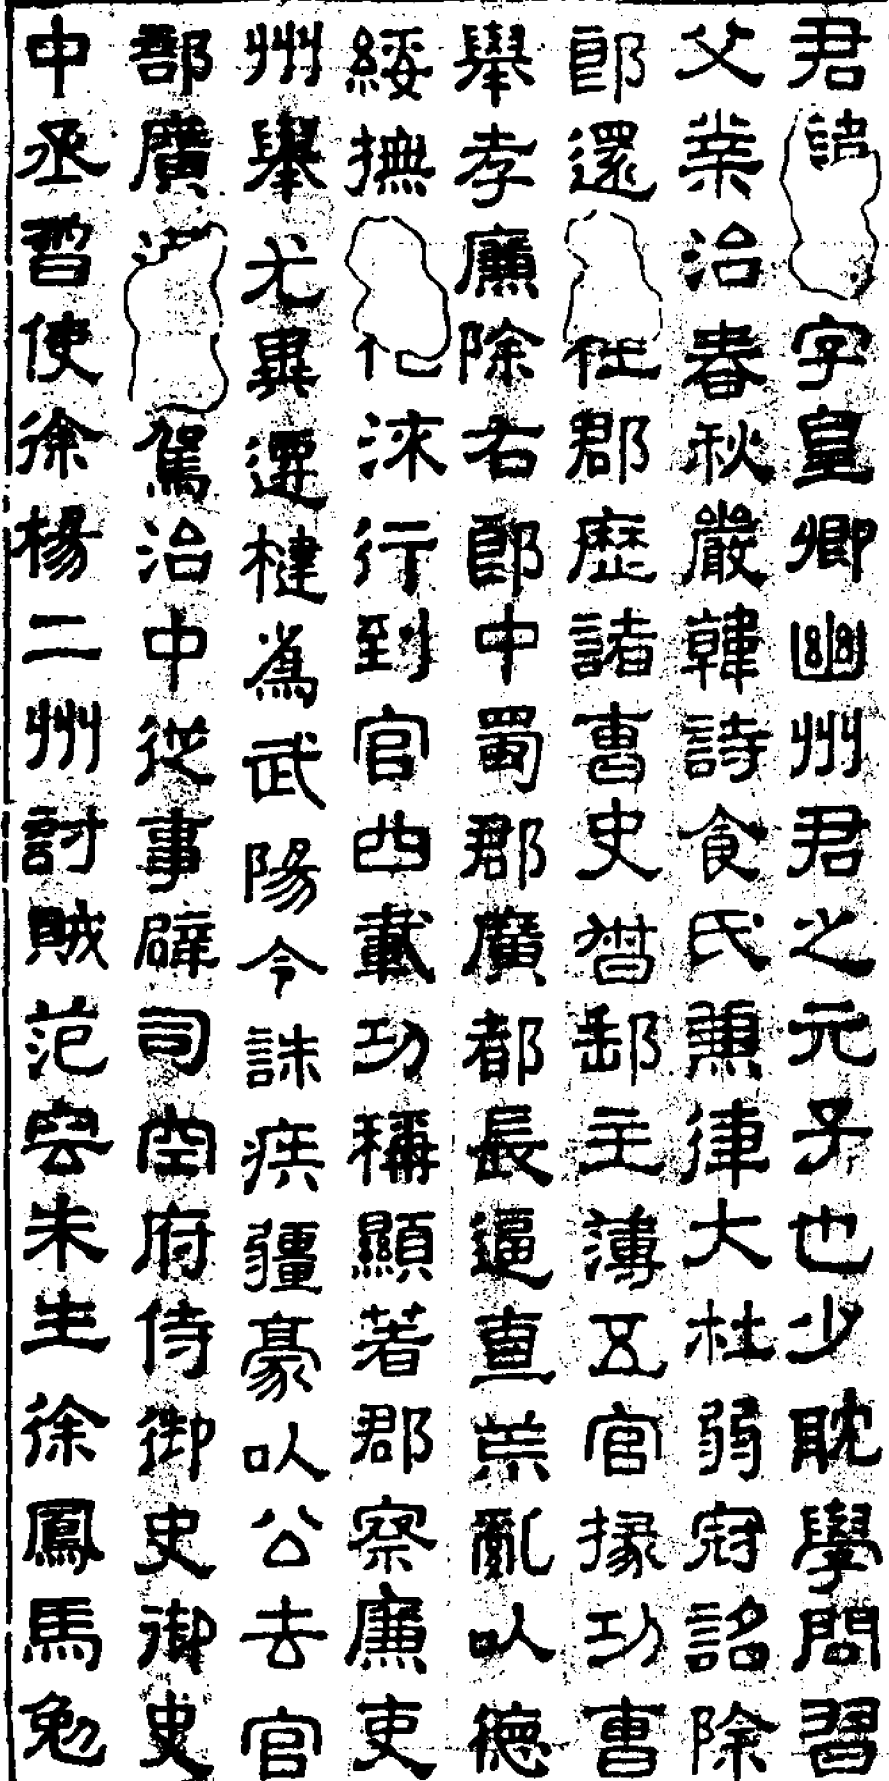 君諱字皇卿幽州君之元子也少耽學問習
父業治春秋嚴韓詩食氏兼律大杜弱冠詔除
郎還仕郡歷諸曹史督郵主薄五官掾功曹
舉孝廉除右郎中蜀郡廣都長逼直荒亂以德
綏撫化淶行到官四載功稱顯著郡察廉吏
州舉尤異遷楗為武陽令誅疾疆豪以公去官
部廣駕治中從事辟司空府侍御史御史
中丞督使徐楊二州討賊范容朱生徐鳳馬勉